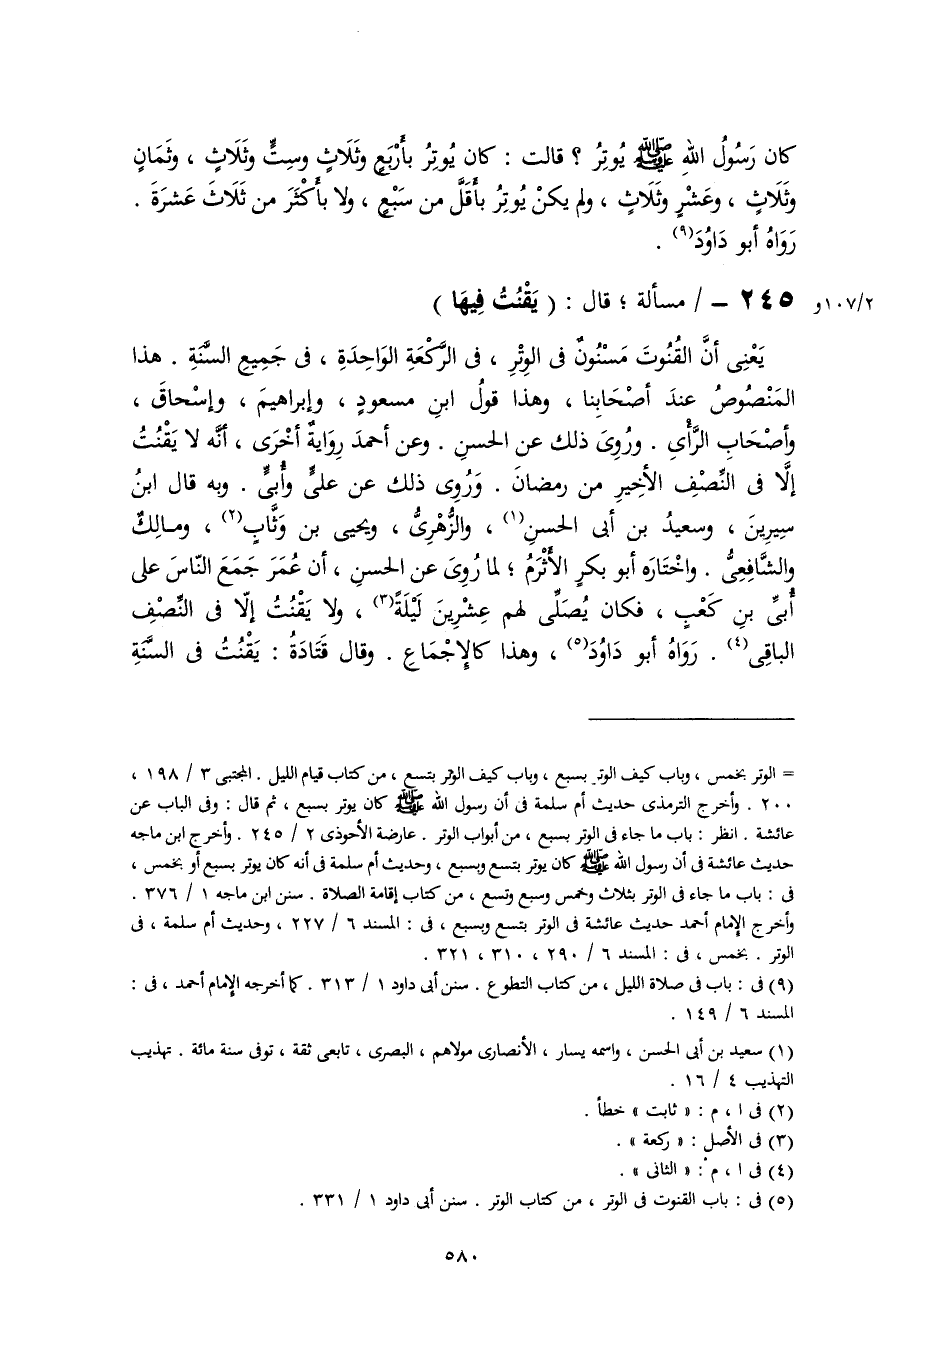 كان رَسُولُ اللهِ ﷺ يُوتِرُ ؟ قالت : كان يُوتِرُ بأَرْبَعٍ وثَلَاثٍ وسِتٍّ وثَلَاثٍ ، وثَمَانٍ
وثَلَاثٍ ، وعَشْرٍ وثَلَاثٍ ، ولم يكنْ يُوتِرُ بأَقَلَّ من سَبْعٍ ، ولا بأَكْثَرَ من ثَلاثَ عَشرَةَ .
رَوَاهُ أبو دَاوُدَ(٩) .
١٠٧/٢و ٢٤٥ – / مسألة ؛ قال : ( يَقْنُتُ فِيهَا )
يَعْنِى أنَّ القُنُوتَ مَسْنُونٌ فى الوِتْرِ ، فى الرَّكْعَةِ الوَاحِدَةِ ، فى جَمِيعِ السَّنَةِ . هذا
المَنْصُوصُ عندَ أصْحَابِنا ، وهذا قولُ ابنِ مسعودٍ ، وإبراهيمَ ، وإسْحاقَ ،
وأصْحَابِ الرَّأْىِ . ورُوِىَ ذلك عن الحسنِ . وعن أحمدَ رِوَايةٌ أخْرَى ، أنَّه لا يَقْنُتُ
إلَّا فى النِّصْفِ الأخِيرِ من رمضانَ . وَرُوِى ذلك عن علىٍّ وأُبىٍّ . وبه قال ابنُ
سِيرِينَ ، وسعيدُ بن أبى الحسنِ(١) ، والزُّهْرِىُّ ، ويحيى بن وَثَّابٍ(٢) ، ومالِكٌ
والشَّافِعِىُّ . واخْتَارَه أبو بكرٍ الأَثْرَمُ ؛ لما رُوِىَ عن الحسنِ ، أن عُمَرَ جَمَعَ النّاسَ على
أُبىِّ بنِ كَعْبٍ ، فكان يُصَلِّى لهم عِشْرِينَ لَيْلَةً(٣) ، ولا يَقْنُتُ إلّا فى النِّصْفِ
الباقِى(٤) . رَوَاهُ أبو دَاوُدَ(٥) ، وهذا كالإِجْمَاعِ . وقال قَتَادَةُ : يَقْنُتُ فى السَّنَةِ
= الوتر بخمس ، وباب كيف الوتر بسبع ، وباب كيف الوتر بتسع ، من كتاب قيام الليل . المجتبى ٣ / ١٩٨ ،
٢٠٠ . وأخرج الترمذى حديث أم سلمة فى أن رسول الله ﷺ كان يوتر بسبع ، ثم قال : وفى الباب عن
عائشة . انظر : باب ما جاء فى الوتر بسبع ، من أبواب الوتر . عارضة الأحوذى ٢ / ٢٤٥ . وأخرج ابن ماجه
حديث عائشة فى أن رسول الله ﷺ كان يوتر بتسع وبسبع ، وحديث أم سلمة فى أنه كان يوتر بسبع أو بخمس ،
فى : باب ما جاء فى الوتر بثلاث وخمس وسبع وتسع ، من كتاب إقامة الصلاة . سنن ابن ماجه ١ / ٣٧٦ .
وأخرج الإمام أحمد حديث عائشة فى الوتر بتسع وبسبع ، فى : المسند ٦ / ٢٢٧ ، وحديث أم سلمة ، فى
الوتر . بخمس ، فى : المسند ٦ / ٢٩٠ ، ٣١٠ ، ٣٢١ .
(٩) فى : باب فى صلاة الليل ، من كتاب التطوع . سنن أبى داود ١ / ٣١٣ . كما أخرجه الإمام أحمد ، فى :
المسند ٦ / ١٤٩ .
(١) سعيد بن أبى الحسن ، واسمه يسار ، الأنصارى مولاهم ، البصرى ، تابعى ثقة ، توفى سنة مائة . تهذيب
التهذيب ٤ / ١٦ .
(٢) فى ا ، م : « ثابت » خطأ .
(٣) فى الأصل : « ركعة » .
(٤) فى ا ، م : « الثانى » .
(٥) فى : باب القنوت فى الوتر ، من كتاب الوتر . سنن أبى داود ١ / ٣٣١ .
٥٨٠